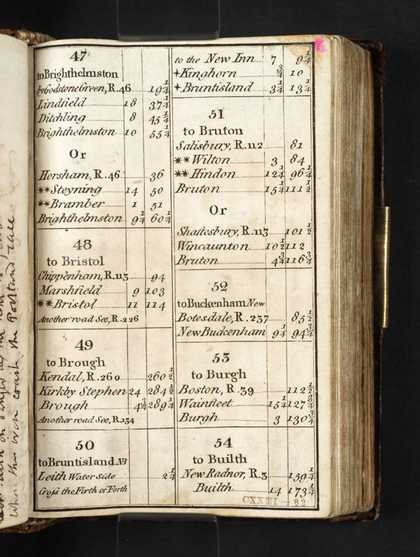 47
to Brighthelmston
by Godstone Green, R.46 19¼
Lindfield 18 37¼
Ditchling 8 45¼
Brighthelmston 10 55¼
Or
Horsham, R.46 36
**Steyning 14 50
**Bramber 1 51
Brighthelmston 9¼ 60¼
48
to Bristol
Chippenham, R.113 94
Marshfield 9 103
**Bristol 11 114
Another road See, R.226
49
to Brough
Kendal, R.260 260
Kirkby Stephen 24 284
Brough 289
Another road See, R.234
50
to Bruntisland
Leith Water Side 2¼
Cross the Firth of Forth
to the New Inn 7 9¼
+Kinghorn ¾ 10
+Bruntisland 3¼ 13¼
51
to Bruton
Salisbury, R.112 81
**Wilton 3 84
**Hindon 12¼ 96¼
Bruton 15¼ 111½
Or
Shaftesbury, R.113 101½
Wincaunton 10½ 112
Bruton 4¾ 116¾
52
to Buckenham New
Botesdale, R.237 85½
New Buckenham 9¼ 94¾
53
to Burgh
Boston, R.39 112
Wainfleet 15¼ 127
Burgh 3 130
54
to Builth
New Radnor, R.3 159
Builth 14 173